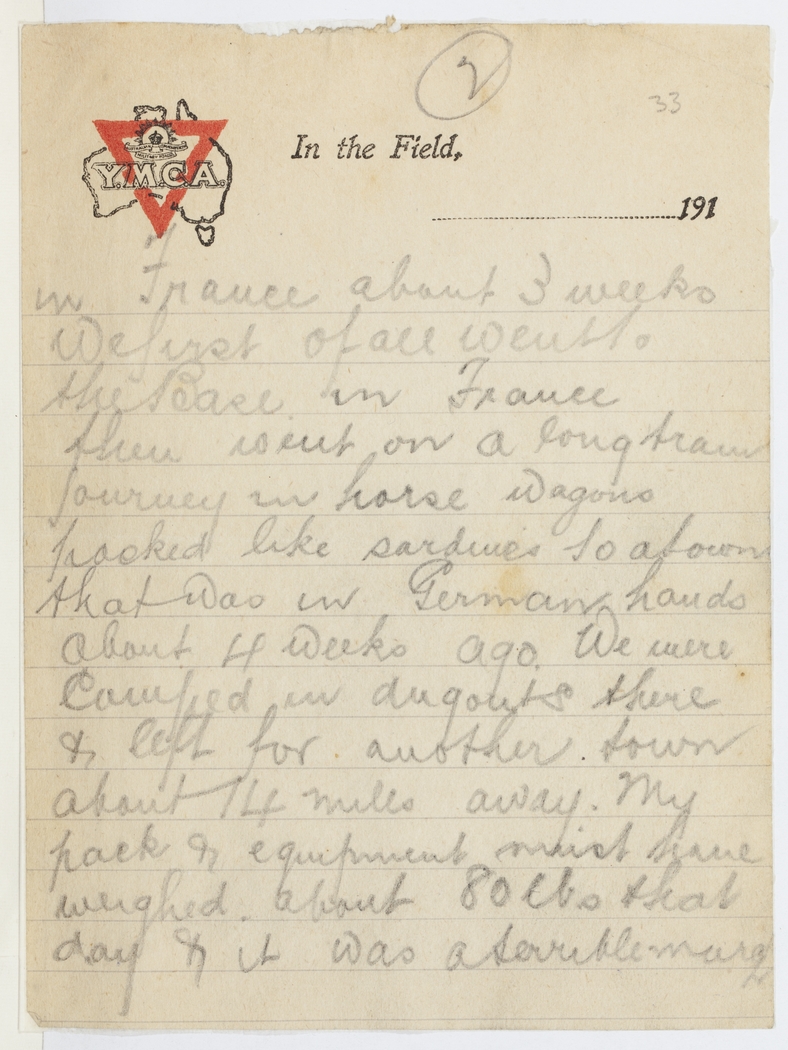 2
33
Y.M.C.A.
In the Field,
191
in France about 3 weeks
We first of all went to
the Base in France
then went on a long train
journey in horse wagons
packed like sardines to a town
that was in German hands
about 4 weeks ago. We were
Camped in dugouts there
& left for another town
about 14 miles away. My
pack & equipment must have
weighed about 80 lbs that
day & it was a terrible march